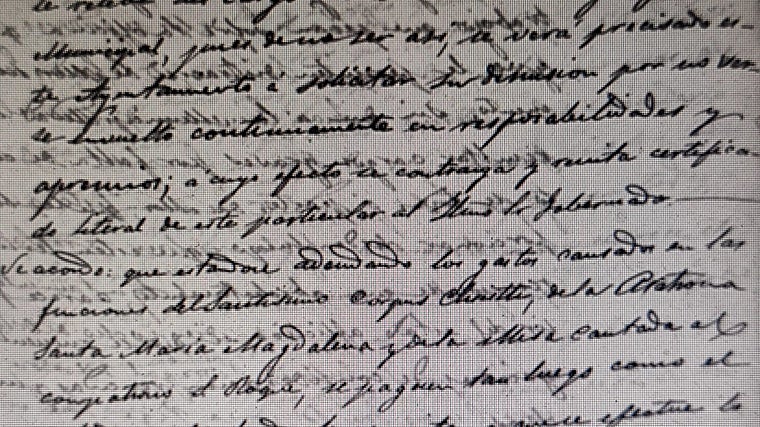 Municipal, pues de no ser asi, se verá precisado es-
te Ayuntamiento á solicitar su dimision por no ver-
se envuelto continuamente en responsabilidades y
apremios; á cuyo efecto se contraiga y remita certifica-
do literal de este particular al Ilmo Sr Gobernador
Se acordo: que estandose adeudando los gastos causados en las
funciones del Santisimo Corpus Christi, de la Patrona
Santa Maria Magdalena y de la Misa cantada al
compatrono S. Roque, se paguen tan luego como el